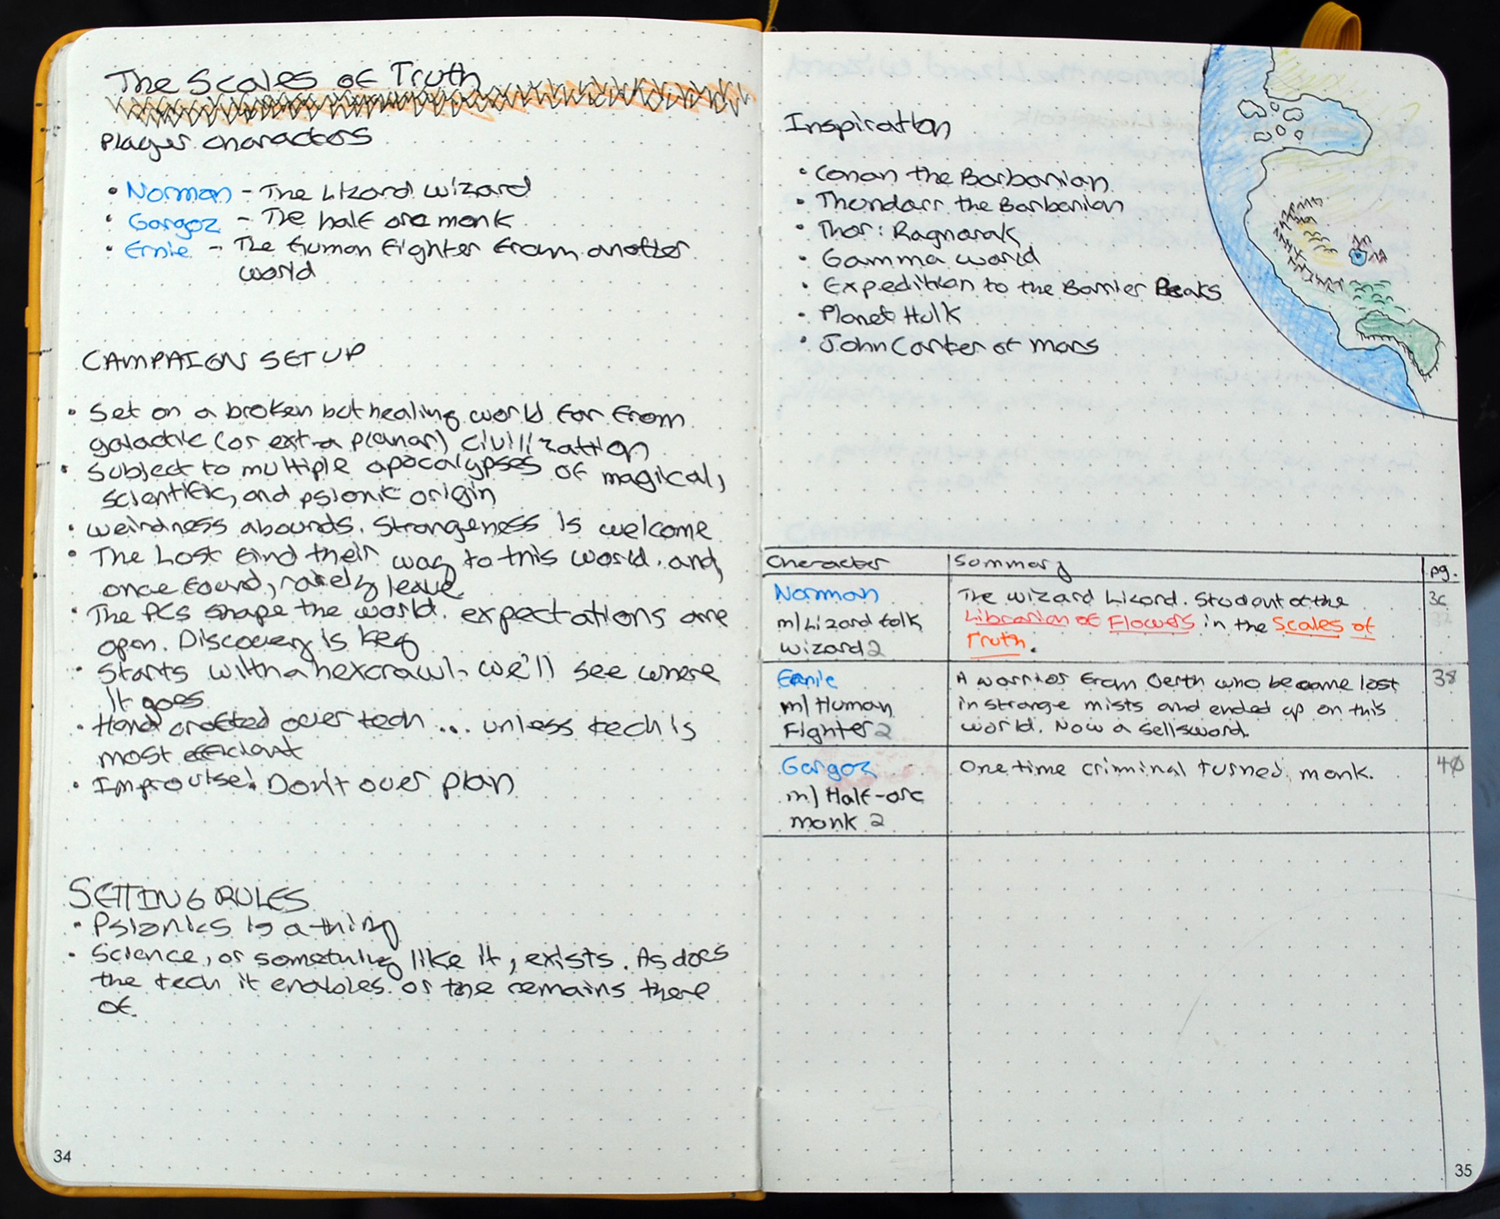 The Scales of Truth
Player characters
• Norman - The Lizard wizard
• Gorgoz - The half orc monk
• Ernie - The human fighter from another
world
CAMPAIGN SET UP
• Set on a broken but healing world far from
galactic (or extra planar) civilization
• Subject to multiple apocalypses of magical,
scientific, and psionic origin
• weirdness abounds. Strangeness is welcome
• The Lost find their way to this world. and,
once found, rarely leave
• The PCs shape the world. expectations are
open. Discovery is key
• Starts with a hexcrawl - we'll see where
it goes
• Hand crafted over tech ... unless tech is
most efficient
• Improvise! Don't over plan
SETTING RULES
• Psionics is a thing
• Science, or something like it, exists. As does
the tech it enables or the remains there
of.
34
Inspiration
• Conan the Barbarian
• Thundarr the Barbarian
• Thor: Ragnarak
• Gamma world
• Expedition to the Barrier Peaks
• Planet Hulk
• John Carter of Mars
Character Summary pg.
Norman The wizard Lizard. Student of the 36
m/Lizard folk Librarian of Flowers in the Scales of
wizard 2 Truth.
Ernie A warrior from Oerth who became lost 38
m/Human in strange mists and ended up on this
Fighter 2 world. Now a sellsword.
Gorgoz One time criminal turned monk. 40
m/Half-orc
monk 2
35